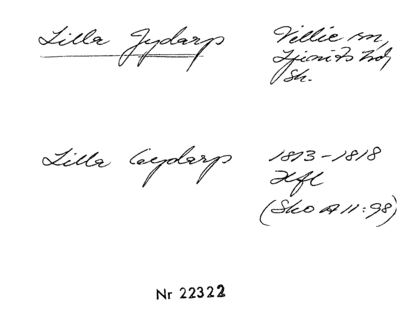 Lilla Jydarp Villie sn,
Ljunits hd,
Sk.
Lilla Gydarp 1813-1818
Hfl
(Sko A II:98)
Nr 22322